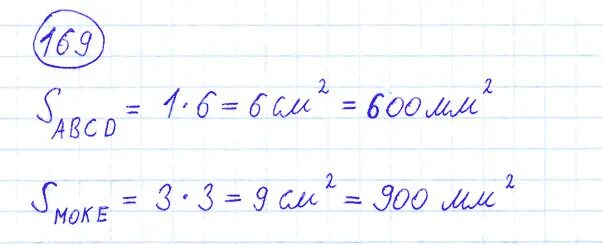 169
S ABCD = 1 · 6 = 6 см² = 600 мм²
S МОКЕ = 3 · 3 = 9 см² = 900 мм²